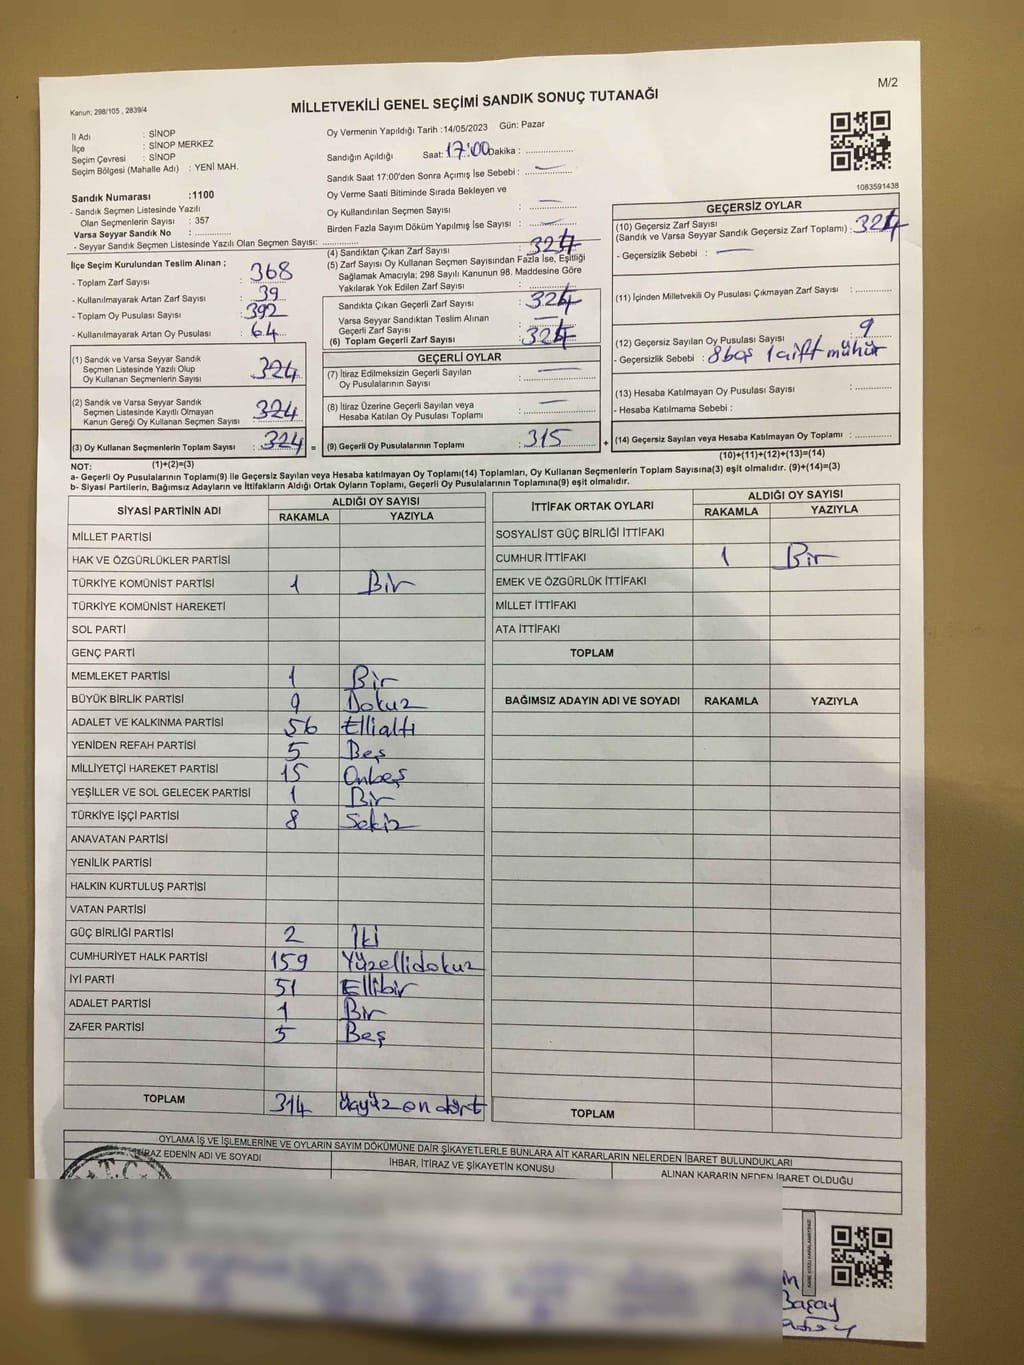 M/2
Kanun; 298/105 , 2839/4
MİLLETVEKİLİ GENEL SEÇİMİ SANDIK SONUÇ TUTANAĞI
İl Adı : SİNOP
İlçe : SİNOP MERKEZ
Seçim Çevresi : SİNOP
Seçim Bölgesi (Mahalle Adı) : YENİ MAH.
Sandık Numarası :1100
- Sandık Seçmen Listesinde Yazılı
Olan Seçmenlerin Sayısı : 357
Varsa Seyyar Sandık No : ..............
- Seyyar Sandık Seçmen Listesinde Yazılı Olan Seçmen Sayısı: ..............
Oy Vermenin Yapıldığı Tarih :14/05/2023 Gün: Pazar
Sandığın Açıldığı Saat: 17:00 Dakika : ..............
Sandık Saat 17:00'den Sonra Açımış İse Sebebi : ..............
Oy Verme Saati Bitiminde Sırada Bekleyen ve
Oy Kullandırılan Seçmen Sayısı : —
Birden Fazla Sayım Döküm Yapılmış İse Sayısı : —
1083591438
İlçe Seçim Kurulundan Teslim Alınan ;
- Toplam Zarf Sayısı : 368
- Kullanılmayarak Artan Zarf Sayısı : 39
- Toplam Oy Pusulası Sayısı : 392
- Kullanılmayarak Artan Oy Pusulası : 64
(1) Sandık ve Varsa Seyyar Sandık
Seçmen Listesinde Yazılı Olup
Oy Kullanan Seçmenlerin Sayısı : 324
(2) Sandık ve Varsa Seyyar Sandık
Seçmen Listesinde Kayıtlı Olmayan
Kanun Gereği Oy Kullanan Seçmen Sayısı : 324
(3) Oy Kullanan Seçmenlerin Toplam Sayısı : 324 =
(4) Sandıktan Çıkan Zarf Sayısı : 324
(5) Zarf Sayısı Oy Kullanan Seçmen Sayısından Fazla İse, Eşitliği
Sağlamak Amacıyla; 298 Sayılı Kanunun 98. Maddesine Göre
Yakılarak Yok Edilen Zarf Sayısı : ..............
Sandıkta Çıkan Geçerli Zarf Sayısı : 324
Varsa Seyyar Sandıktan Teslim Alınan
Geçerli Zarf Sayısı : —
(6) Toplam Geçerli Zarf Sayısı : 324
GEÇERLİ OYLAR
(7) İtiraz Edilmeksizin Geçerli Sayılan
Oy Pusulalarının Sayısı : —
(8) İtiraz Üzerine Geçerli Sayılan veya
Hesaba Katılan Oy Pusulası Toplamı : —
(9) Geçerli Oy Pusulalarının Toplamı : 315 +
GEÇERSİZ OYLAR
(10) Geçersiz Zarf Sayısı
(Sandık ve Varsa Seyyar Sandık Geçersiz Zarf Toplamı) : 324
- Geçersizlik Sebebi : —
(11) İçinden Milletvekili Oy Pusulası Çıkmayan Zarf Sayısı : ..............
(12) Geçersiz Sayılan Oy Pusulası Sayısı : 9
- Geçersizlik Sebebi : 8 boş 1 çift mühür
(13) Hesaba Katılmayan Oy Pusulası Sayısı : ..............
- Hesaba Katılmama Sebebi :
(14) Geçersiz Sayılan veya Hesaba Katılmayan Oy Toplamı : ..............
NOT: (1)+(2)=(3)
(10)+(11)+(12)+(13)=(14)
a- Geçerli Oy Pusulalarının Toplamı(9) ile Geçersiz Sayılan veya Hesaba katılmayan Oy Toplamı(14) Toplamları, Oy Kullanan Seçmenlerin Toplam Sayısına(3) eşit olmalıdır. (9)+(14)=(3)
b- Siyasi Partilerin, Bağımsız Adayların ve İttifakların Aldığı Ortak Oyların Toplamı, Geçerli Oy Pusulalarının Toplamına(9) eşit olmalıdır.
SİYASİ PARTİNİN ADI ALDIĞI OY SAYISI
RAKAMLA YAZIYLA
MİLLET PARTİSİ
HAK VE ÖZGÜRLÜKLER PARTİSİ
TÜRKİYE KOMÜNİST PARTİSİ 1 Bir
TÜRKİYE KOMÜNİST HAREKETİ
SOL PARTİ
GENÇ PARTİ
MEMLEKET PARTİSİ 1 Bir
BÜYÜK BİRLİK PARTİSİ 9 Dokuz
ADALET VE KALKINMA PARTİSİ 56 Ellialtı
YENİDEN REFAH PARTİSİ 5 Beş
MİLLİYETÇİ HAREKET PARTİSİ 15 Onbeş
YEŞİLLER VE SOL GELECEK PARTİSİ 1 Bir
TÜRKİYE İŞÇİ PARTİSİ 8 Sekiz
ANAVATAN PARTİSİ
YENİLİK PARTİSİ
HALKIN KURTULUŞ PARTİSİ
VATAN PARTİSİ
GÜÇ BİRLİĞİ PARTİSİ 2 İki
CUMHURİYET HALK PARTİSİ 159 Yüzellidokuz
İYİ PARTİ 51 Ellibir
ADALET PARTİSİ 1 Bir
ZAFER PARTİSİ 5 Beş
TOPLAM 314 Üçyüz on dört
İTTİFAK ORTAK OYLARI ALDIĞI OY SAYISI
RAKAMLA YAZIYLA
SOSYALİST GÜÇ BİRLİĞİ İTTİFAKI
CUMHUR İTTİFAKI 1 Bir
EMEK VE ÖZGÜRLÜK İTTİFAKI
MİLLET İTTİFAKI
ATA İTTİFAKI
TOPLAM
BAĞIMSIZ ADAYIN ADI VE SOYADI RAKAMLA YAZIYLA
TOPLAM
OYLAMA İŞ VE İŞLEMLERİNE VE OYLARIN SAYIM DÖKÜMÜNE DAİR ŞİKAYETLERLE BUNLARA AİT KARARLARIN NELERDEN İBARET BULUNDUKLARI
İTİRAZ EDENİN ADI VE SOYADI İHBAR, İTİRAZ VE ŞİKAYETİN KONUSU ALINAN KARARIN NEDEN İBARET OLDUĞU
T.C.
Başay